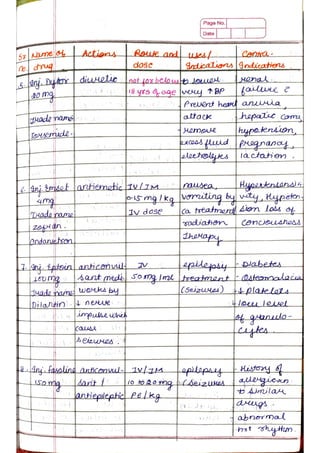 Page No.
Date
Sr Name of Actions Route and Uses/ Contra-
no. drug dose Indications Indications
5. Inj. Dytor diuretic not for below to lower renal
20 mg 18 yrs of age very ↑ BP failure c
Prevent heart anuria,
Trade name attack hepatic coma,
Torsemide. - remove hypotension,
excess fluid pregnancy,
electrolytes lactation.
6. Inj. Emset antiemetic IV/IM nausea, Hypersensiti-
4mg 0.15 mg/kg vomiting by vity, Hypoten-
Trade name IV dose ca treatment sion loss of
zofran. radiation conciousness
Ondansetron Therapy
7. Inj. Eptoin anticonvul- IV epilepsy - Diabetes
100 mg sant medi 50 mg/ml treatment - Osteomalacia
Trade name works by (Seizures) - ↓ Platelets
Dilantin ↓ nerve - low level
impulse which of granulo-
cause cytes.
seizures.
8. Inj. Fosolin anticonvul- IV/IM epilepsy - History of
150 mg sant / 10 to 20 mg (Seizures
antiepileptic PE/kg to similar
drugs.
- abnormal
hrt rhythm.